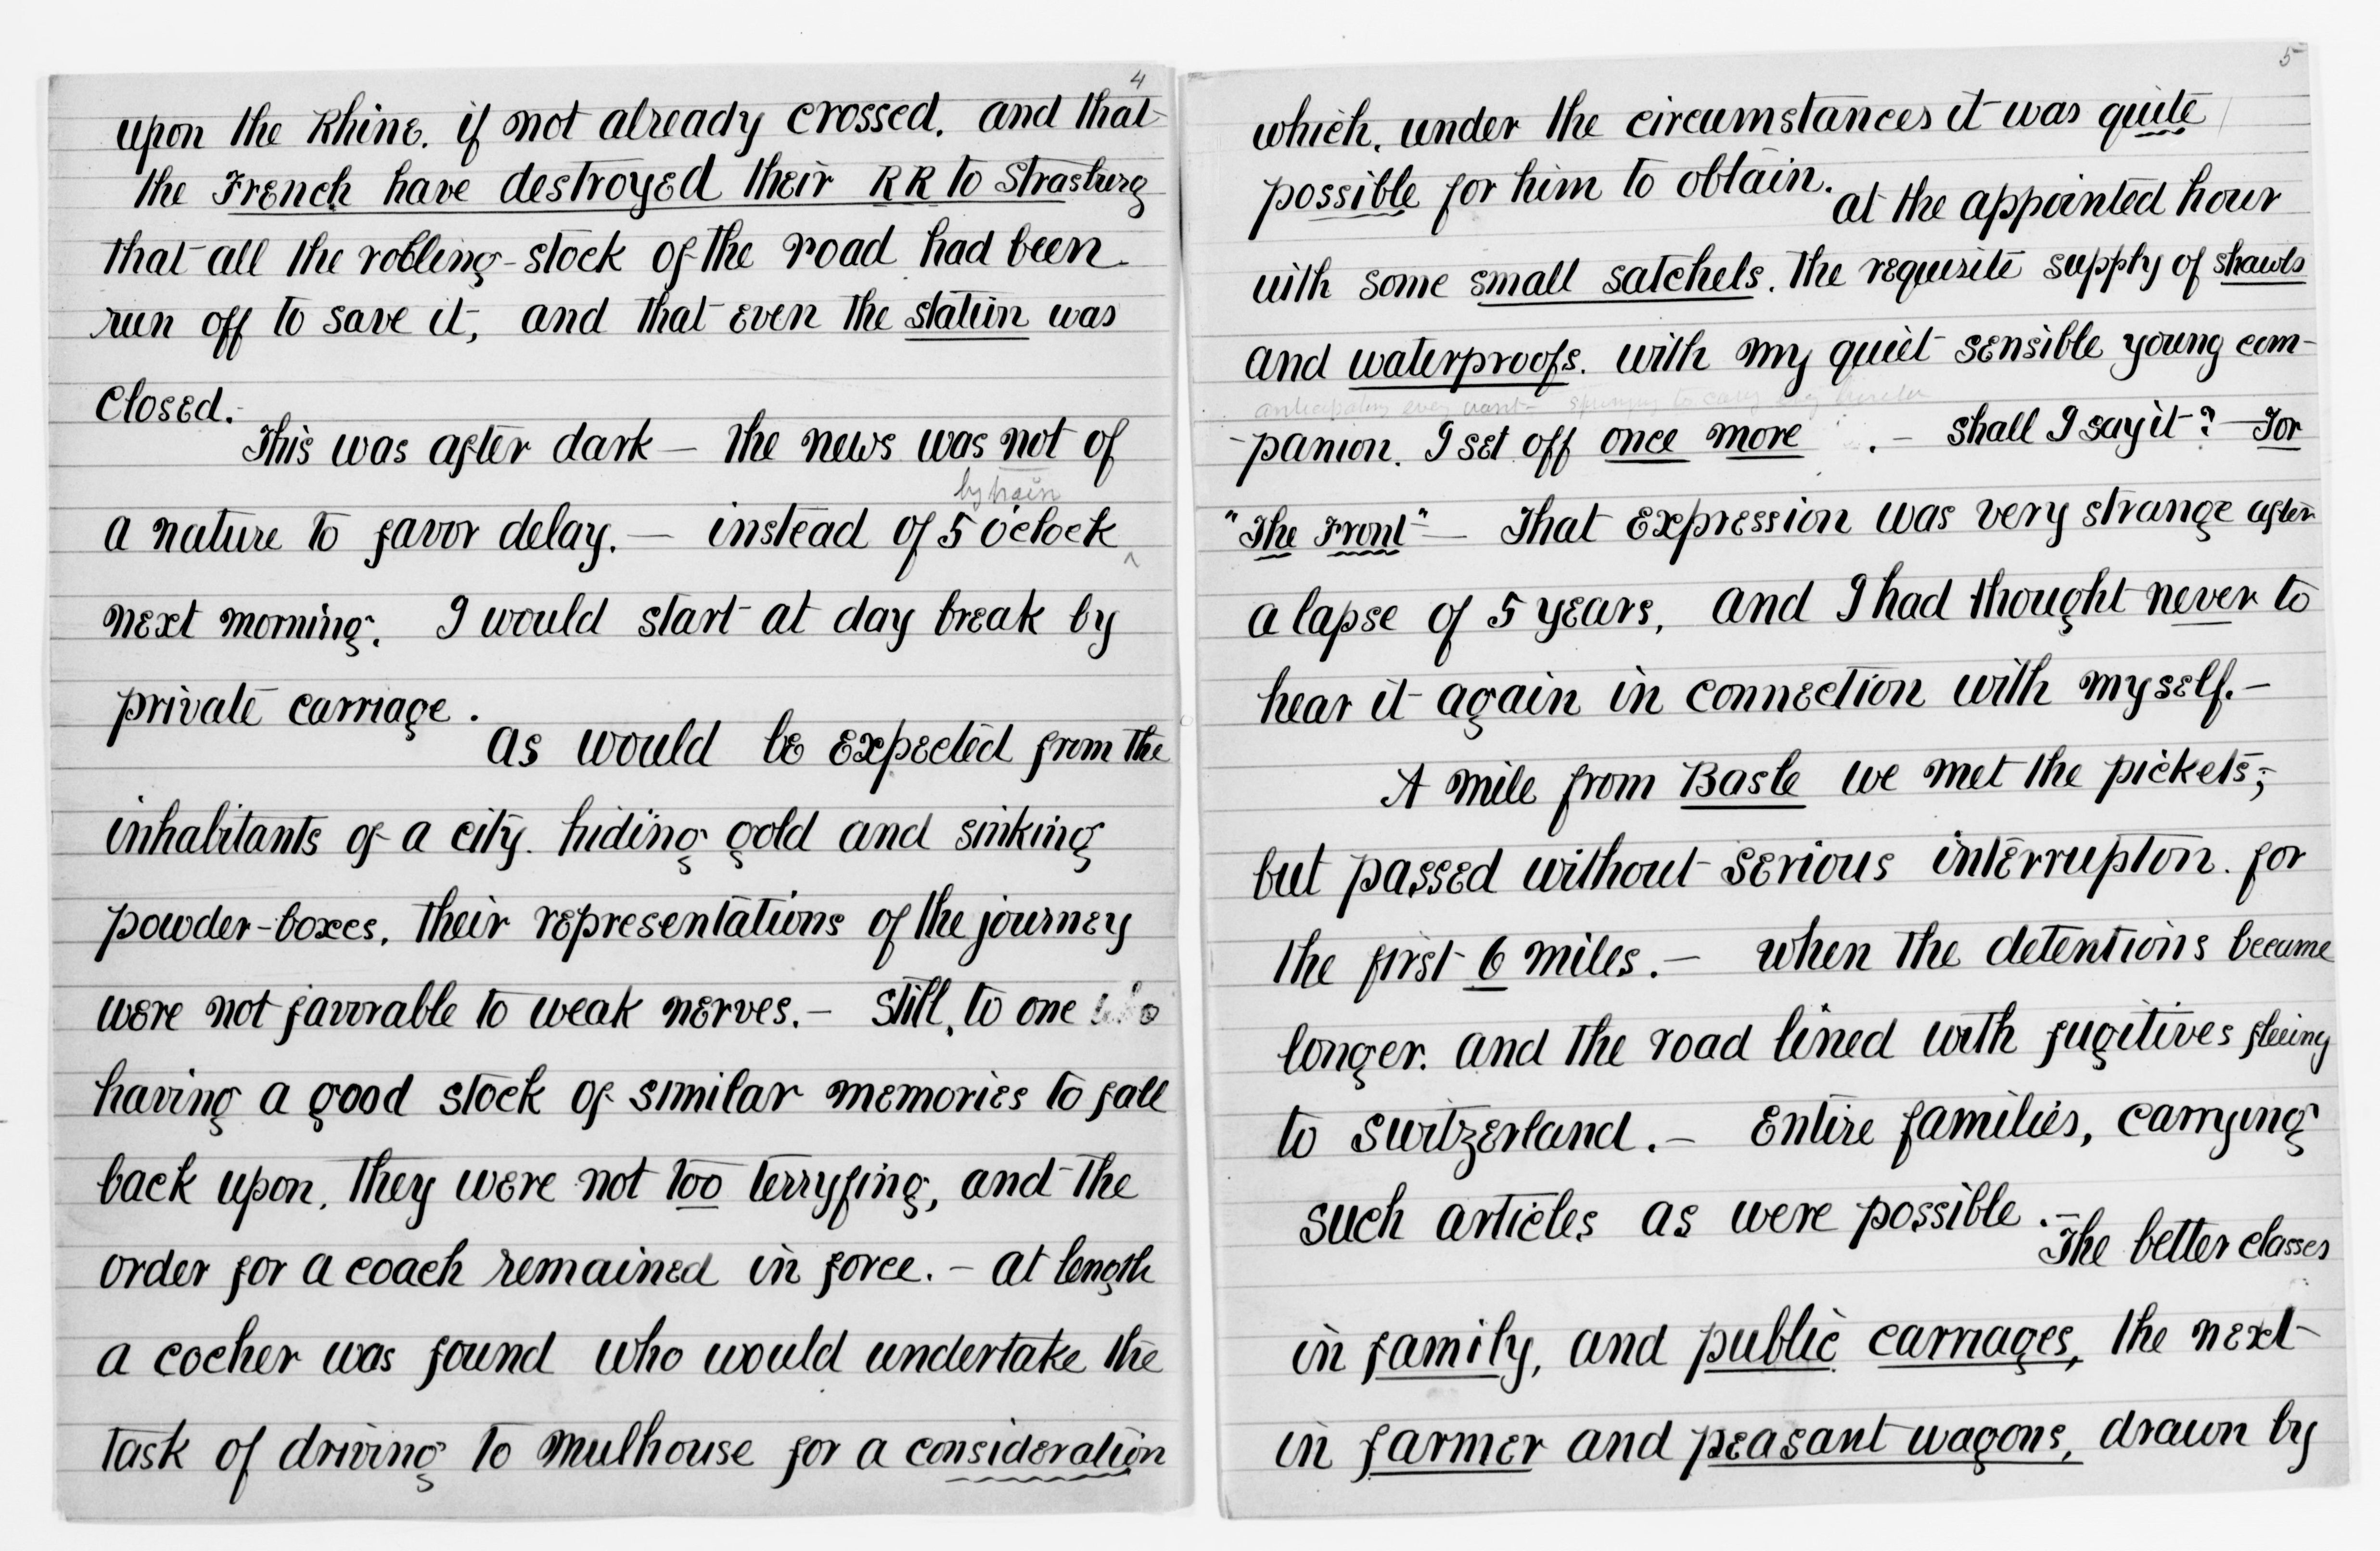 4
upon the Rhine. if not already crossed. and that
the French have destroyed their RR to Strasburg
that all the rolling-stock of the road had been
run off to save it, and that even the station was
closed.
This was after dark — the news was not of
by train
a nature to favor delay. — instead of 5 o'clock ^
next morning. I would start at day break by
private carriage.
as would be expected from the
inhabitants of a city. hiding gold and sinking
powder-boxes. their representations of the journey
were not favorable to weak nerves. — still, to one who
having a good stock of similar memories to fall
back upon. they were not too terryfing, and the
order for a coach remained in force. — at length
a cocher was found who would undertake the
task of driving to Mulhouse for a consideration
5
which. under the circumstances it was quite
possible for him to obtain.
at the appointed hour
with some small satchels. the requisite supply of shawls
and waterproofs. with my quiet sensible young com-
anticipating every want — springing to carry every
-panion. I set off once more . — shall I say it? — For
"The Front" — That expression was very strange after
a lapse of 5 years, and I had thought never to
hear it again in connection with myself. —
A mile from Basle we met the pickets;
but passed without serious interrupton. for
the first 6 miles. — when the detentions became
longer. and the road lined with fugitives fleeing
to Switzerland. — Entire families, carrying
such articles as were possible. —
The better classes
in family, and public carriages, the next
in farmer and peasant wagons, drawn by